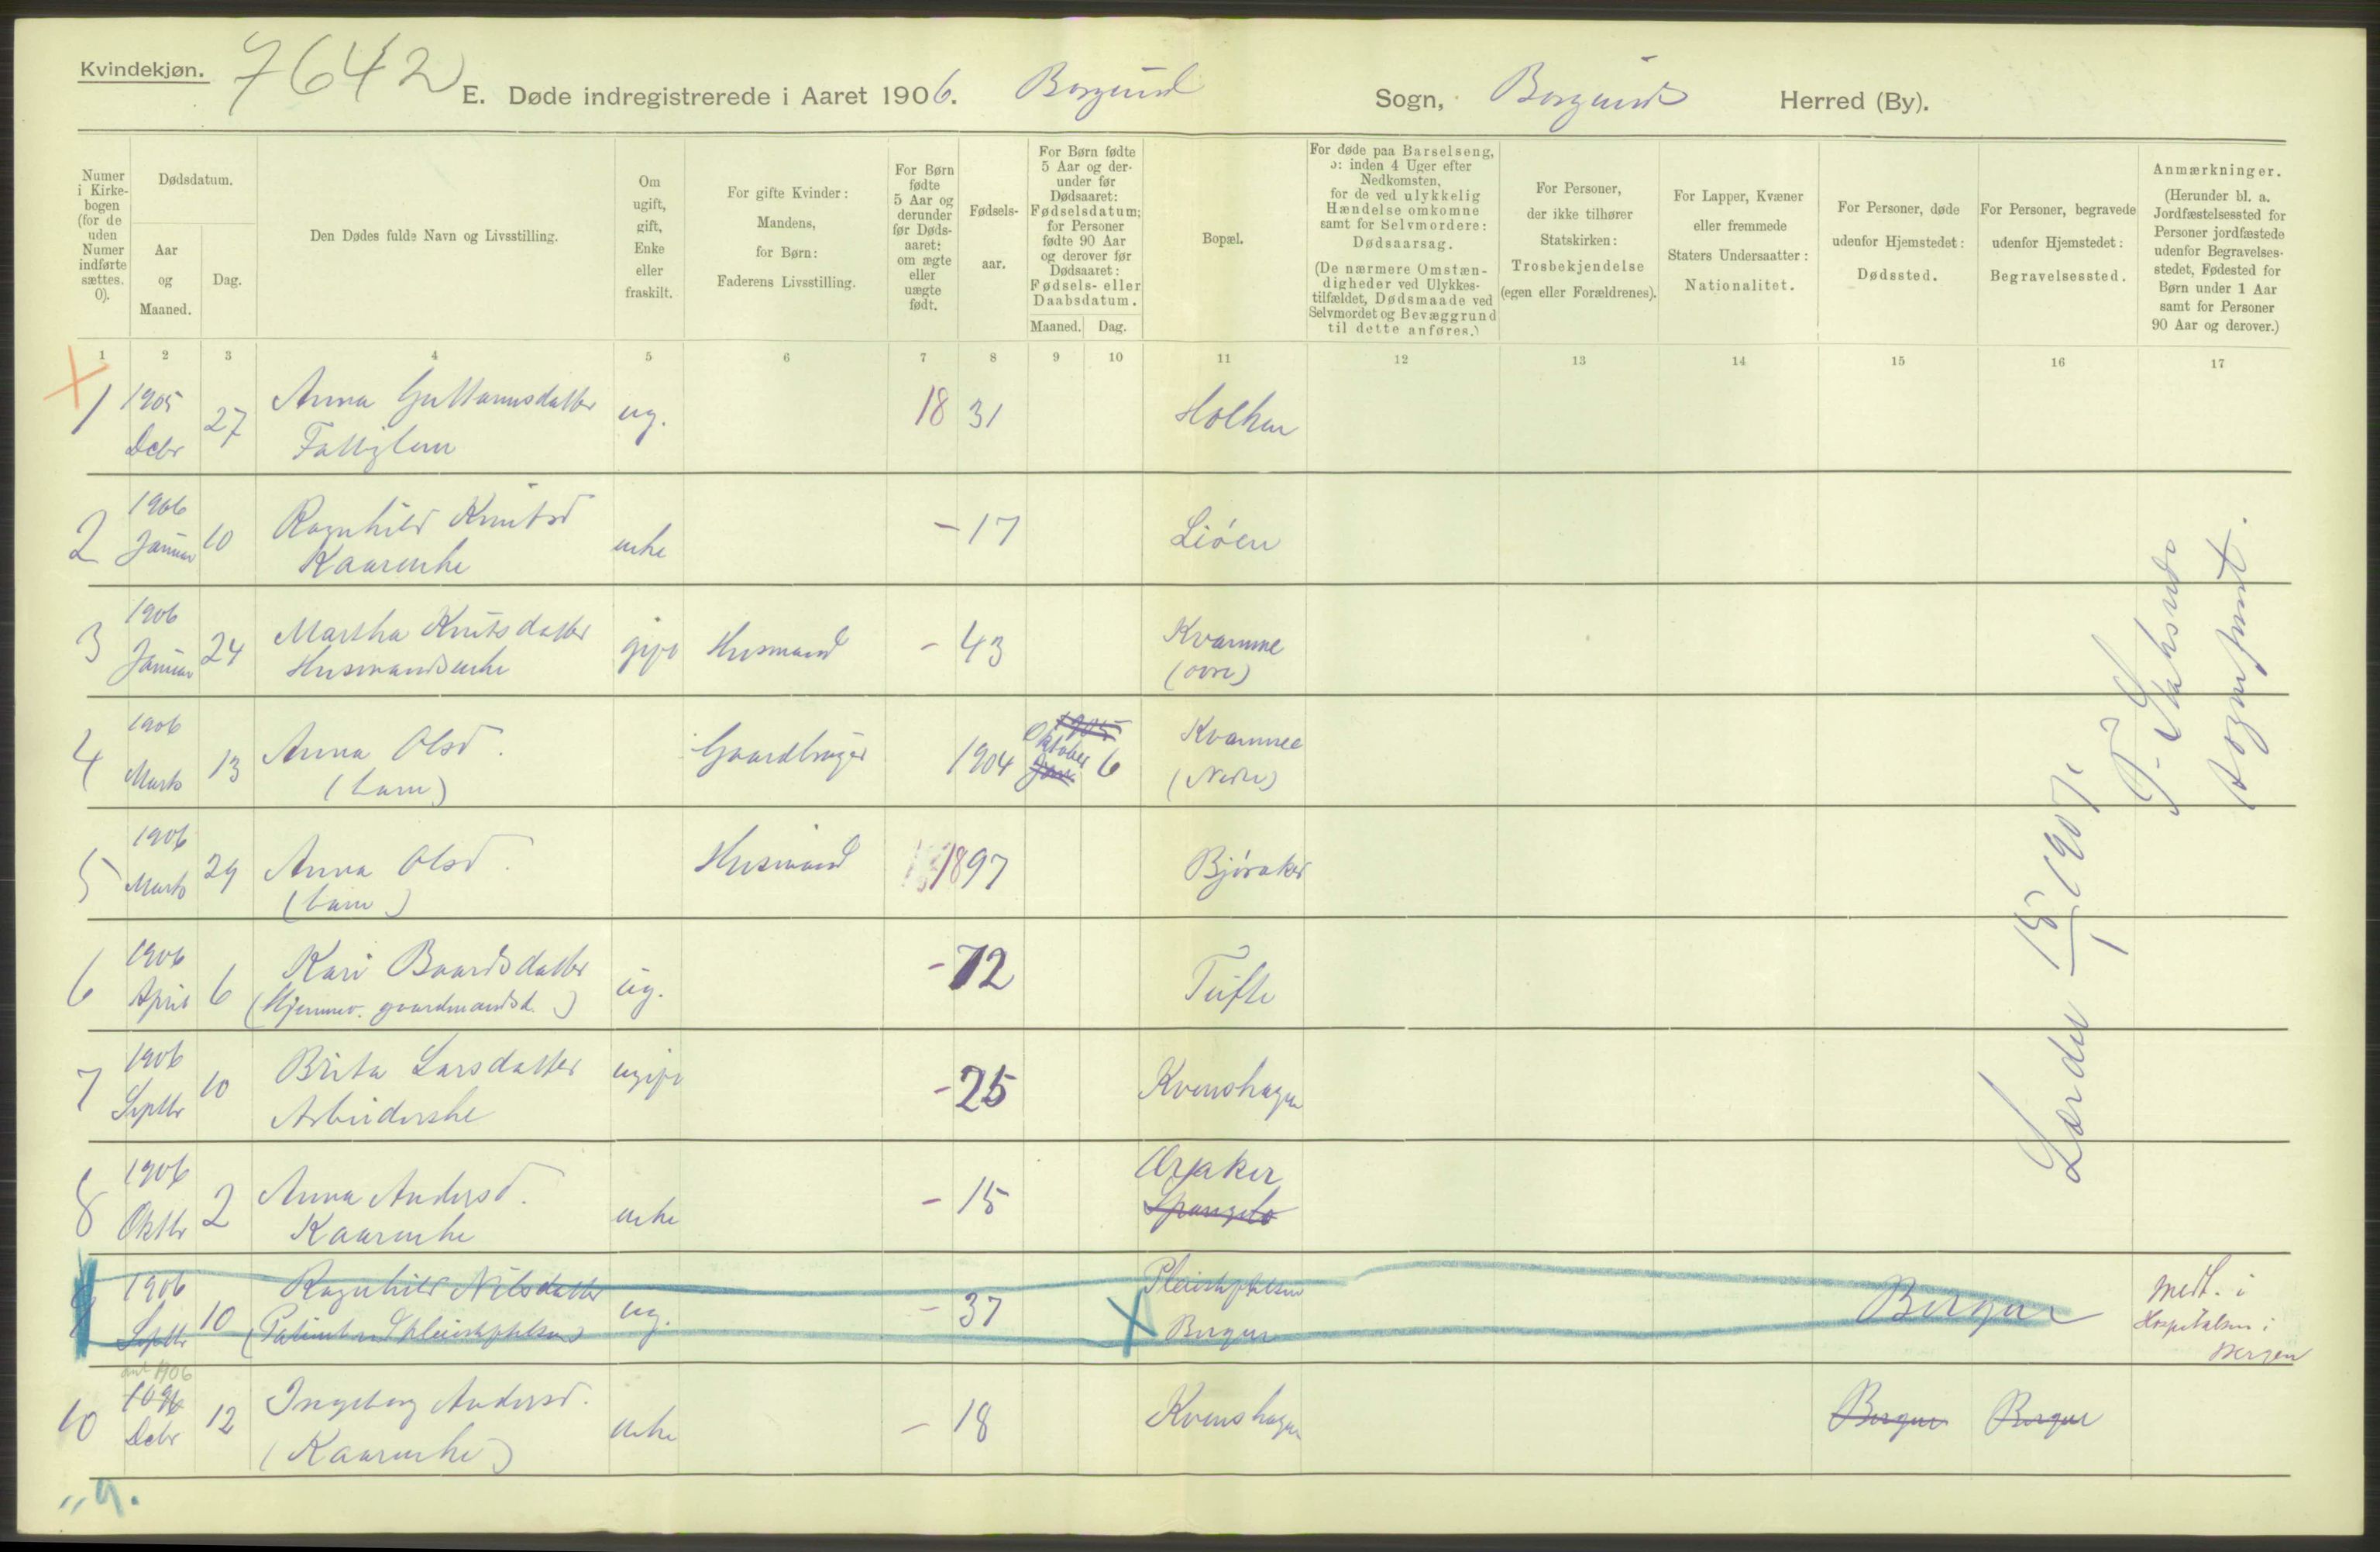 Kvindekjøn.
7642
E. Døde indregistrerede i Aaret 1906. Borgund Sogn, Borgund Herred (By).
Numer i Kirke-bogen (for de uden Numer indførte sættes. 0).
Dødsdatum.
Aar og Maaned.
Dag.
Den Dødes fulde Navn og Livsstilling.
Om ugift, gift, Enke eller fraskilt.
For gifte Kvinder: Mandens, for Børn: Faderens Livsstilling.
For Børn fødte 5 Aar og derunder før Døds-aaret: om ægte eller uægte født.
Fødsels-aar.
For Børn fødte 5 Aar og der-under før Dødsaaret: Fødselsdatum; for Personer fødte 90 Aar og derover før Dødsaaret: Fødsels- eller Daabsdatum.
Maaned. Dag.
Bopæl.
For døde paa Barselseng, ɔ: inden 4 Uger efter Nedkomsten, for de ved ulykkelig Hændelse omkomne samt for Selvmordere: Dødsaarsag.
(De nærmere Omstæn-digheder ved Ulykkes-tilfældet, Dødsmaade ved Selvmordet og Bevæggrund til dette anføres.)
For Personer, der ikke tilhører Statskirken: Trosbekjendelse (egen eller Forældrenes).
For Lapper, Kvæner eller fremmede Staters Undersaatter: Nationalitet.
For Personer, døde udenfor Hjemstedet: Dødssted.
For Personer, begravede udenfor Hjemstedet: Begravelsessted.
Anmærkninger.
(Herunder bl. a. Jordfæstelsessted for Personer jordfæstede udenfor Begravelses-stedet, Fødested for Børn under 1 Aar samt for Personer 90 Aar og derover.)
1 2 3 4 5 6 7 8 9 10 11 12 13 14 15 16 17
1 1905 Debr 27 Anna Guttormsdatter ug. 18 31
Fattiglem
2 1906 Januar 10 Ragnhild Knutsd enke - 17 Liøen
Kaarenke
3 1906 Januar 24 Martha Knutsdatter gift Husmand - 43 Kvamme (øvre)
Husmandsenke
4 1906 Marts 13 Anna Olsd. Gaardbruger 1904 1905 Oktober Jan. 6 Kvamme (Nedre)
(barn)
5 1906 Marts 29 Anna Olsd. Husmand 1897 Bjøraker
(barn)
6 1906 April 6 Kari Baardsdatter ug. - 72 Tufte
(Hjemmev. gaardmandsd.)
7 1906 Septbr 10 Brita Larsdatter ugift - 25 Kvenshagen
Arbeiderske
8 1906 Oktbr 2 Anna Andersd. enke - 15 Øraker
Kaarenke
9 1906 Septbr 10 Ragnhild Nilsdatter ug. - 37 Pleiestiftelsen Bergen Bergen
Medt. i Hospitalsen i Bergen
10 1906 Debr 12 Ingeborg Andersd. enke - 18 Kvenshagen Bergen Bergen
(Kaarenke)
" 9.
Lærdal 15/1 1907.
sogneprest.